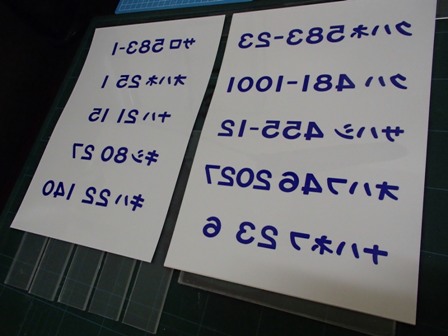 サロ 583-1
オハネ 25 1
ナハ 21 15
キシ 80 27
キハ 22 140
クハネ 583-23
クハ 481-1001
サハシ 455-12
オハフ 46 2027
ナハネフ 23 6